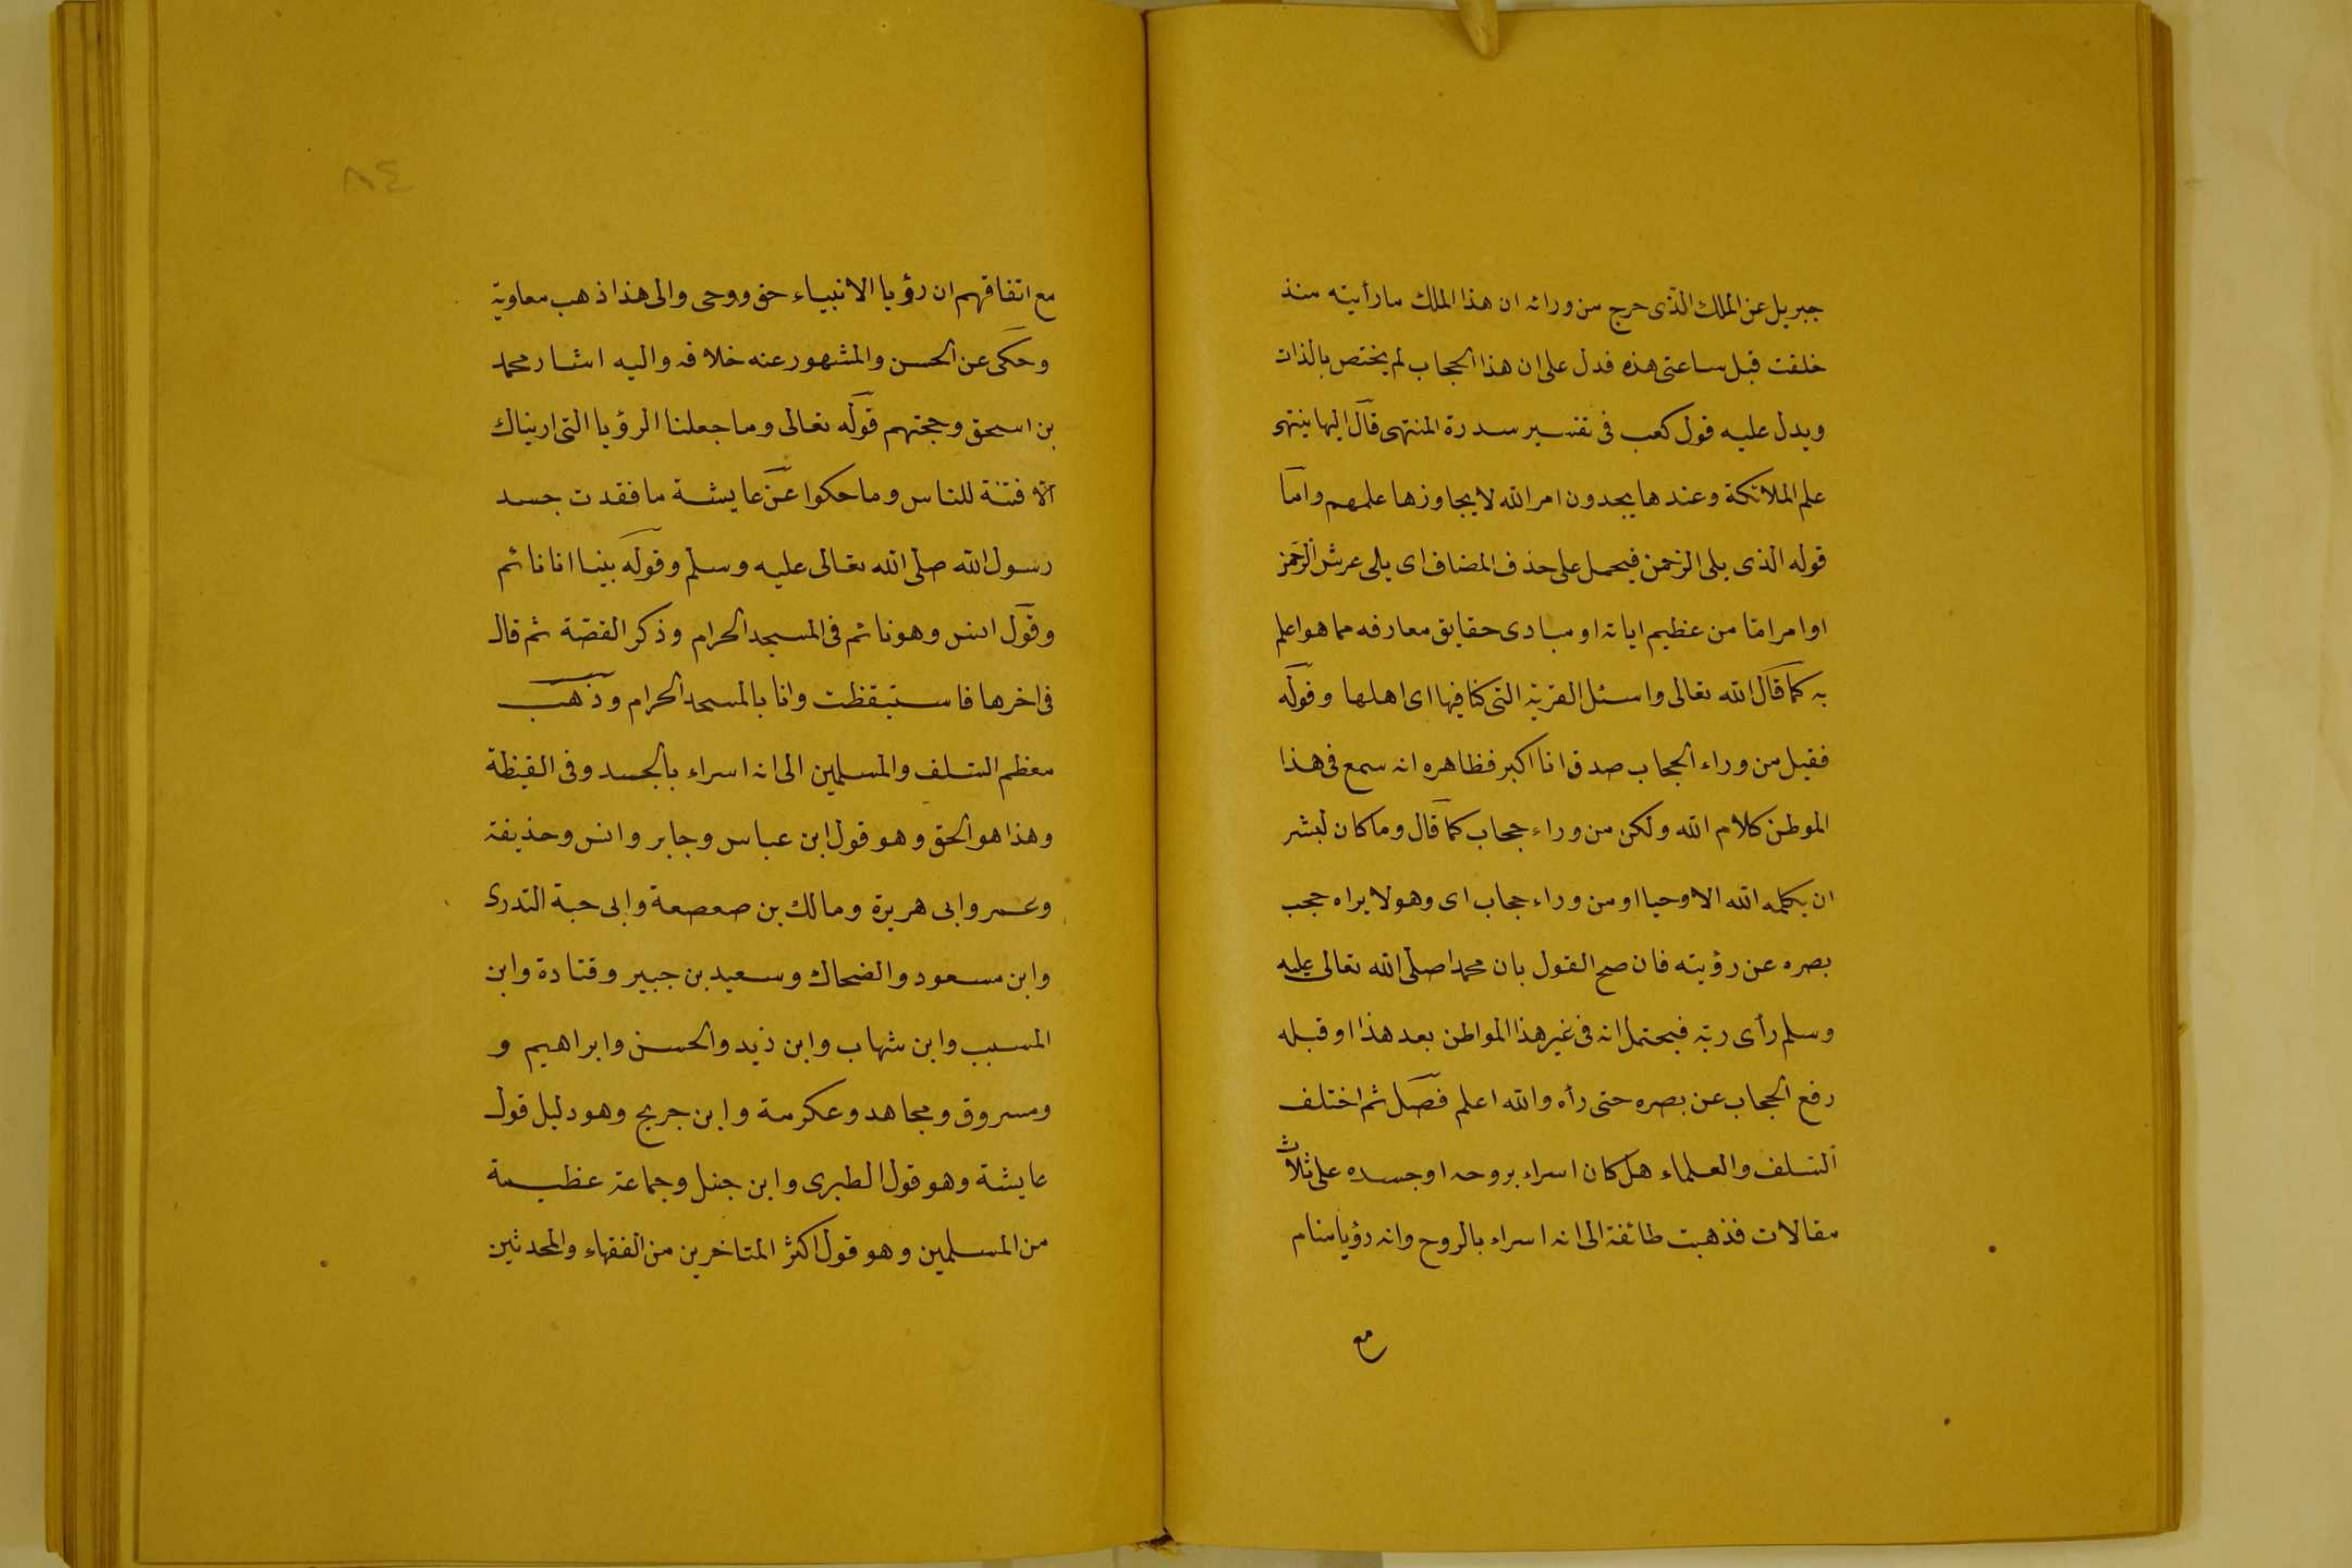 جبريل عن الملك الذى خرج من ورائه ان هذا الملك ما رأيته منذ
خلقت قبل ساعتى هذه فدل على ان هذا الحجاب لم يختص بالذات
ويدل عليه قول كعب فى تفسير سدرة المنتهى قال اليها ينتهى
علم الملائكة وعندها يجدون امر الله لا يجاوزها علمهم واما
قوله الذى يلى الرحمن فيحمل على حذف المضاف اى يلى عرش الرحمن
او امرا ما من عظيم اياته او مبادى حقايق معارفه مما هو اعلم
به كما قال الله تعالى واسئل القرية التى كنا فيها اى اهلها وقوله
فقيل من وراء الحجاب صدق انا اكبر فظاهره انه سمع فى هذا
الموطن كلام الله ولكن من وراء حجاب كما قال وما كان لبشر
ان يكلمه الله الا وحيا او من وراء حجاب اى وهو لا يراه حجب
بصره عن رؤيته فان صح القول بان محمدا صلى الله تعالى عليه
وسلم رأى ربه فيحتمل انه فى غير هذا المواطن بعد هذا او قبله
رفع الحجاب عن بصره حتى رأه والله اعلم فصل ثم اختلف
السلف والعلماء هل كان اسراء بروحه او جسده على ثلاث
مقالات فذهبت طائفة الى انه اسراء بالروح وانه رؤيا منام
مع
٨٤
مع اتفاقهم ان رؤيا الانبياء حق ووحى والى هذا ذهب معاوية
وحكى عن الحسن والمشهور عنه خلافه واليه اشار محمد
بن اسحق وحجتهم قوله تعالى وما جعلنا الرؤيا التى اريناك
الا فتنة للناس وما حكوا عن عايشة ما فقدت جسد
رسول الله صلى الله تعالى عليه وسلم وقوله بينا انا نائم
وقول انس وهو نائم فى المسجد الحرام وذكر القصة ثم قال
فى اخرها فاستيقظت وانا بالمسجد الحرام وذهب
معظم السلف والمسلمين الى انه اسراء بالجسد وفى اليقظة
وهذا هو الحق وهو قول ابن عباس وجابر وانس وحذيفة
وعمر وابى هريرة ومالك بن صعصعة وابى حبة البدرى
وابن مسعود والضحاك وسعيد بن جبير وقتادة وابن
المسيب وابن شهاب وابن زيد والحسن وابراهيم و
ومسروق ومجاهد وعكرمة وابن جريج وهو دليل قول
عايشة وهو قول الطبرى وابن حنبل وجماعة عظيمة
من المسلمين وهو قول اكثر المتاخرين من الفقهاء والمحدثين